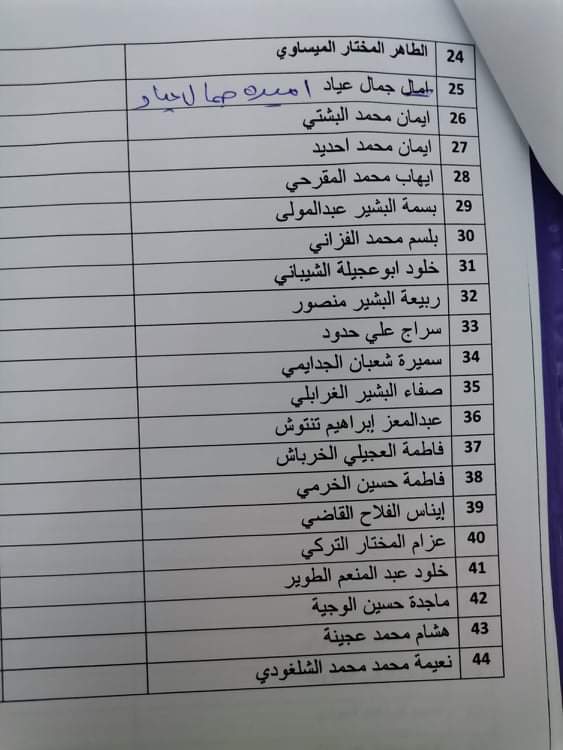 24 الطاهر المختار الميساوي
25 امال جمال عياد اميره جمال عياد
26 ايمان محمد البشتي
27 ايمان محمد احديد
28 ايهاب محمد المقرحي
29 بسمة البشير عبدالمولى
30 بلسم محمد الفزاني
31 خلود ابوعجيلة الشيباني
32 ربيعة البشير منصور
33 سراج علي حدود
34 سميرة شعبان الجدايمي
35 صفاء البشير الغرابلي
36 عبدالمعز إبراهيم تنتوش
37 فاطمة العجيلي الخرباش
38 فاطمة حسين الخرمي
39 إيناس الفلاح القاضي
40 عزام المختار التركي
41 خلود عبد المنعم الطوير
42 ماجدة حسين الوجية
43 هشام محمد عجينة
44 نعيمة محمد محمد الشلغودي